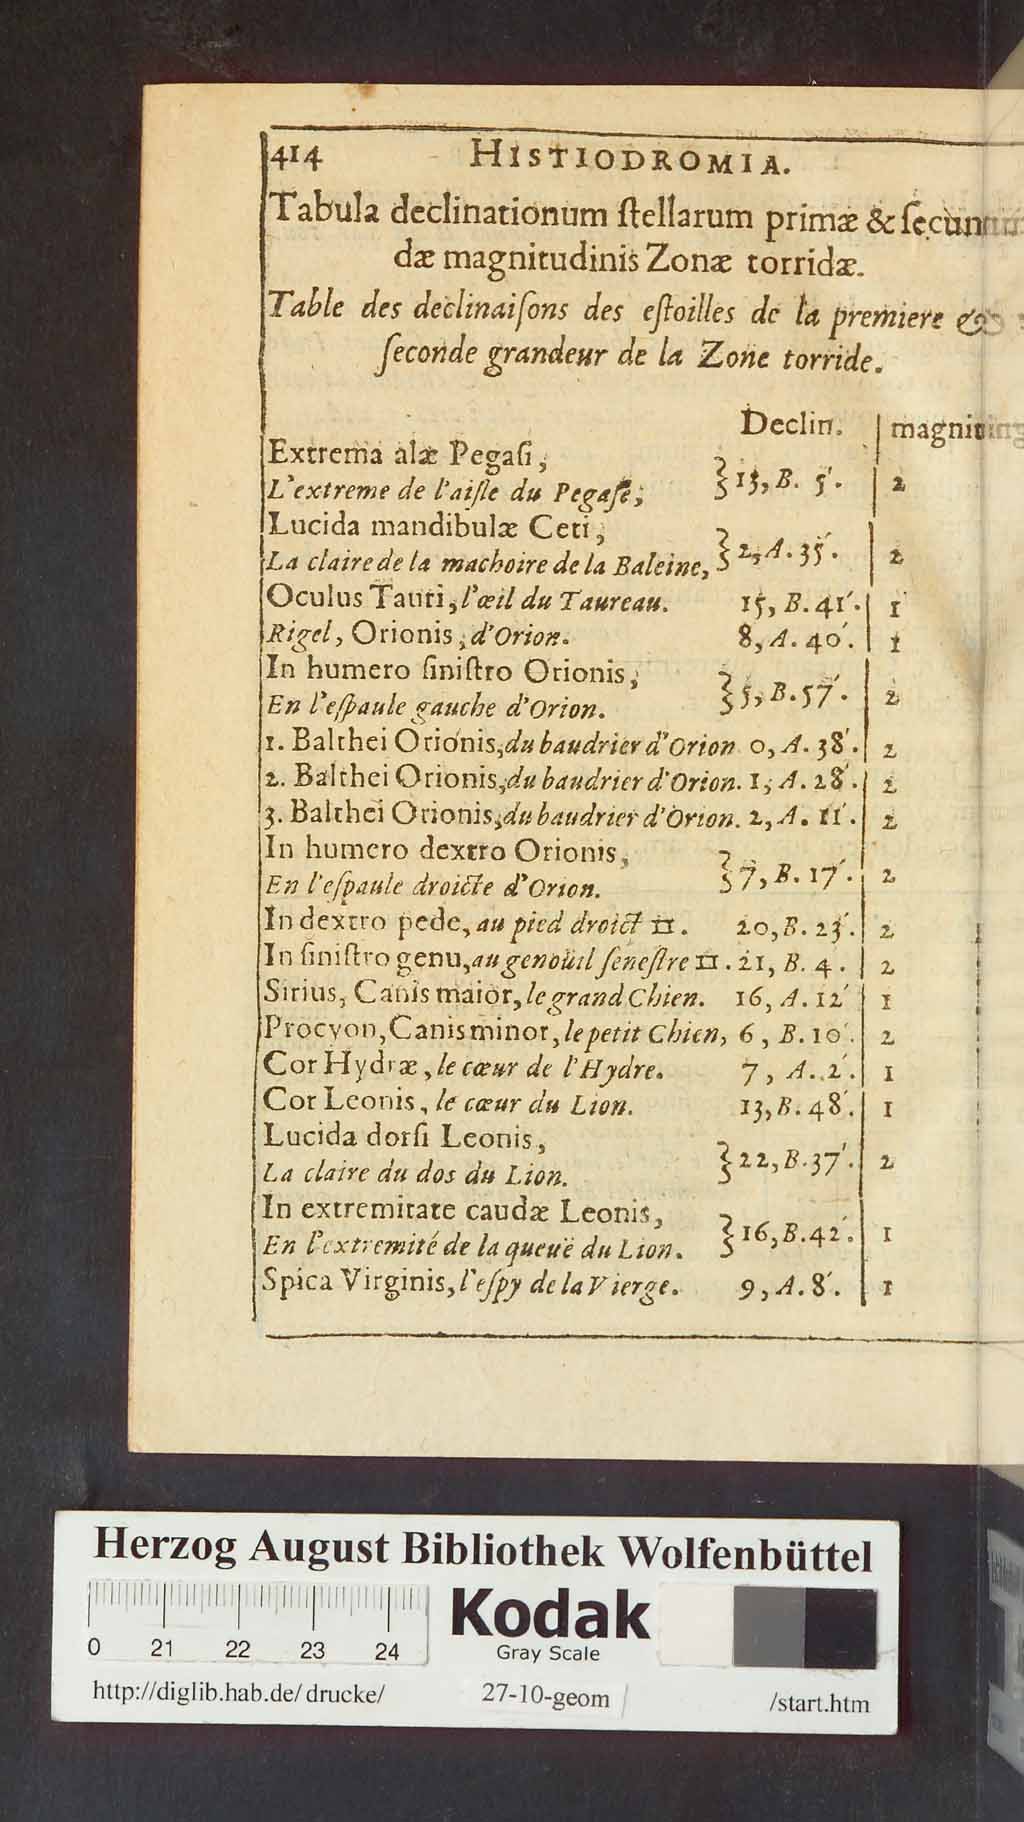 414 HISTIODROMIA.
Tabula declinationum stellarum primæ & secun
dæ magnitudinis Zonæ torridæ.
Table des declinaisons des estoilles de la premiere &
seconde grandeur de la Zone torride.
Declin. magnit
Extrema alæ Pegasi,
L'extreme de l'aisle du Pegase, } 13, B. 5'. 2
Lucida mandibulæ Ceti,
La claire de la machoire de la Baleine, } 2, A. 35'. 2
Oculus Tauri, l'œil du Taureau. 15, B. 41'. 1
Rigel, Orionis, d'Orion. 8, A. 40'. 1
In humero sinistro Orionis,
En l'espaule gauche d'Orion. } 5, B. 57'. 2
1. Balthei Orionis, du baudrier d'Orion 0, A. 38'. 2
2. Balthei Orionis, du baudrier d'Orion. 1, A. 28'. 2
3. Balthei Orionis, du baudrier d'Orion. 2, A. 11'. 2
In humero dextro Orionis,
En l'espaule droicte d'Orion. } 7, B. 17'. 2
In dextro pede, au pied droict ♊. 20, B. 23'. 2
In sinistro genu, au genoüil senestre ♊. 21, B. 4. 2
Sirius, Canis maior, le grand Chien. 16, A. 12' 1
Procyon, Canis minor, le petit Chien, 6, B. 10'. 2
Cor Hydræ, le cœur de l'Hydre. 7, A. 2'. 1
Cor Leonis, le cœur du Lion. 13, B. 48'. 1
Lucida dorsi Leonis,
La claire du dos du Lion. } 22, B. 37'. 2
In extremitate caudæ Leonis,
En l'extremité de la queuë du Lion. } 16, B. 42'. 1
Spica Virginis, l'espy de la Vierge. 9, A. 8'. 1
Herzog August Bibliothek Wolfenbüttel
0 21 22 23 24
Kodak
Gray Scale
http://diglib.hab.de/drucke/ 27-10-geom /start.htm